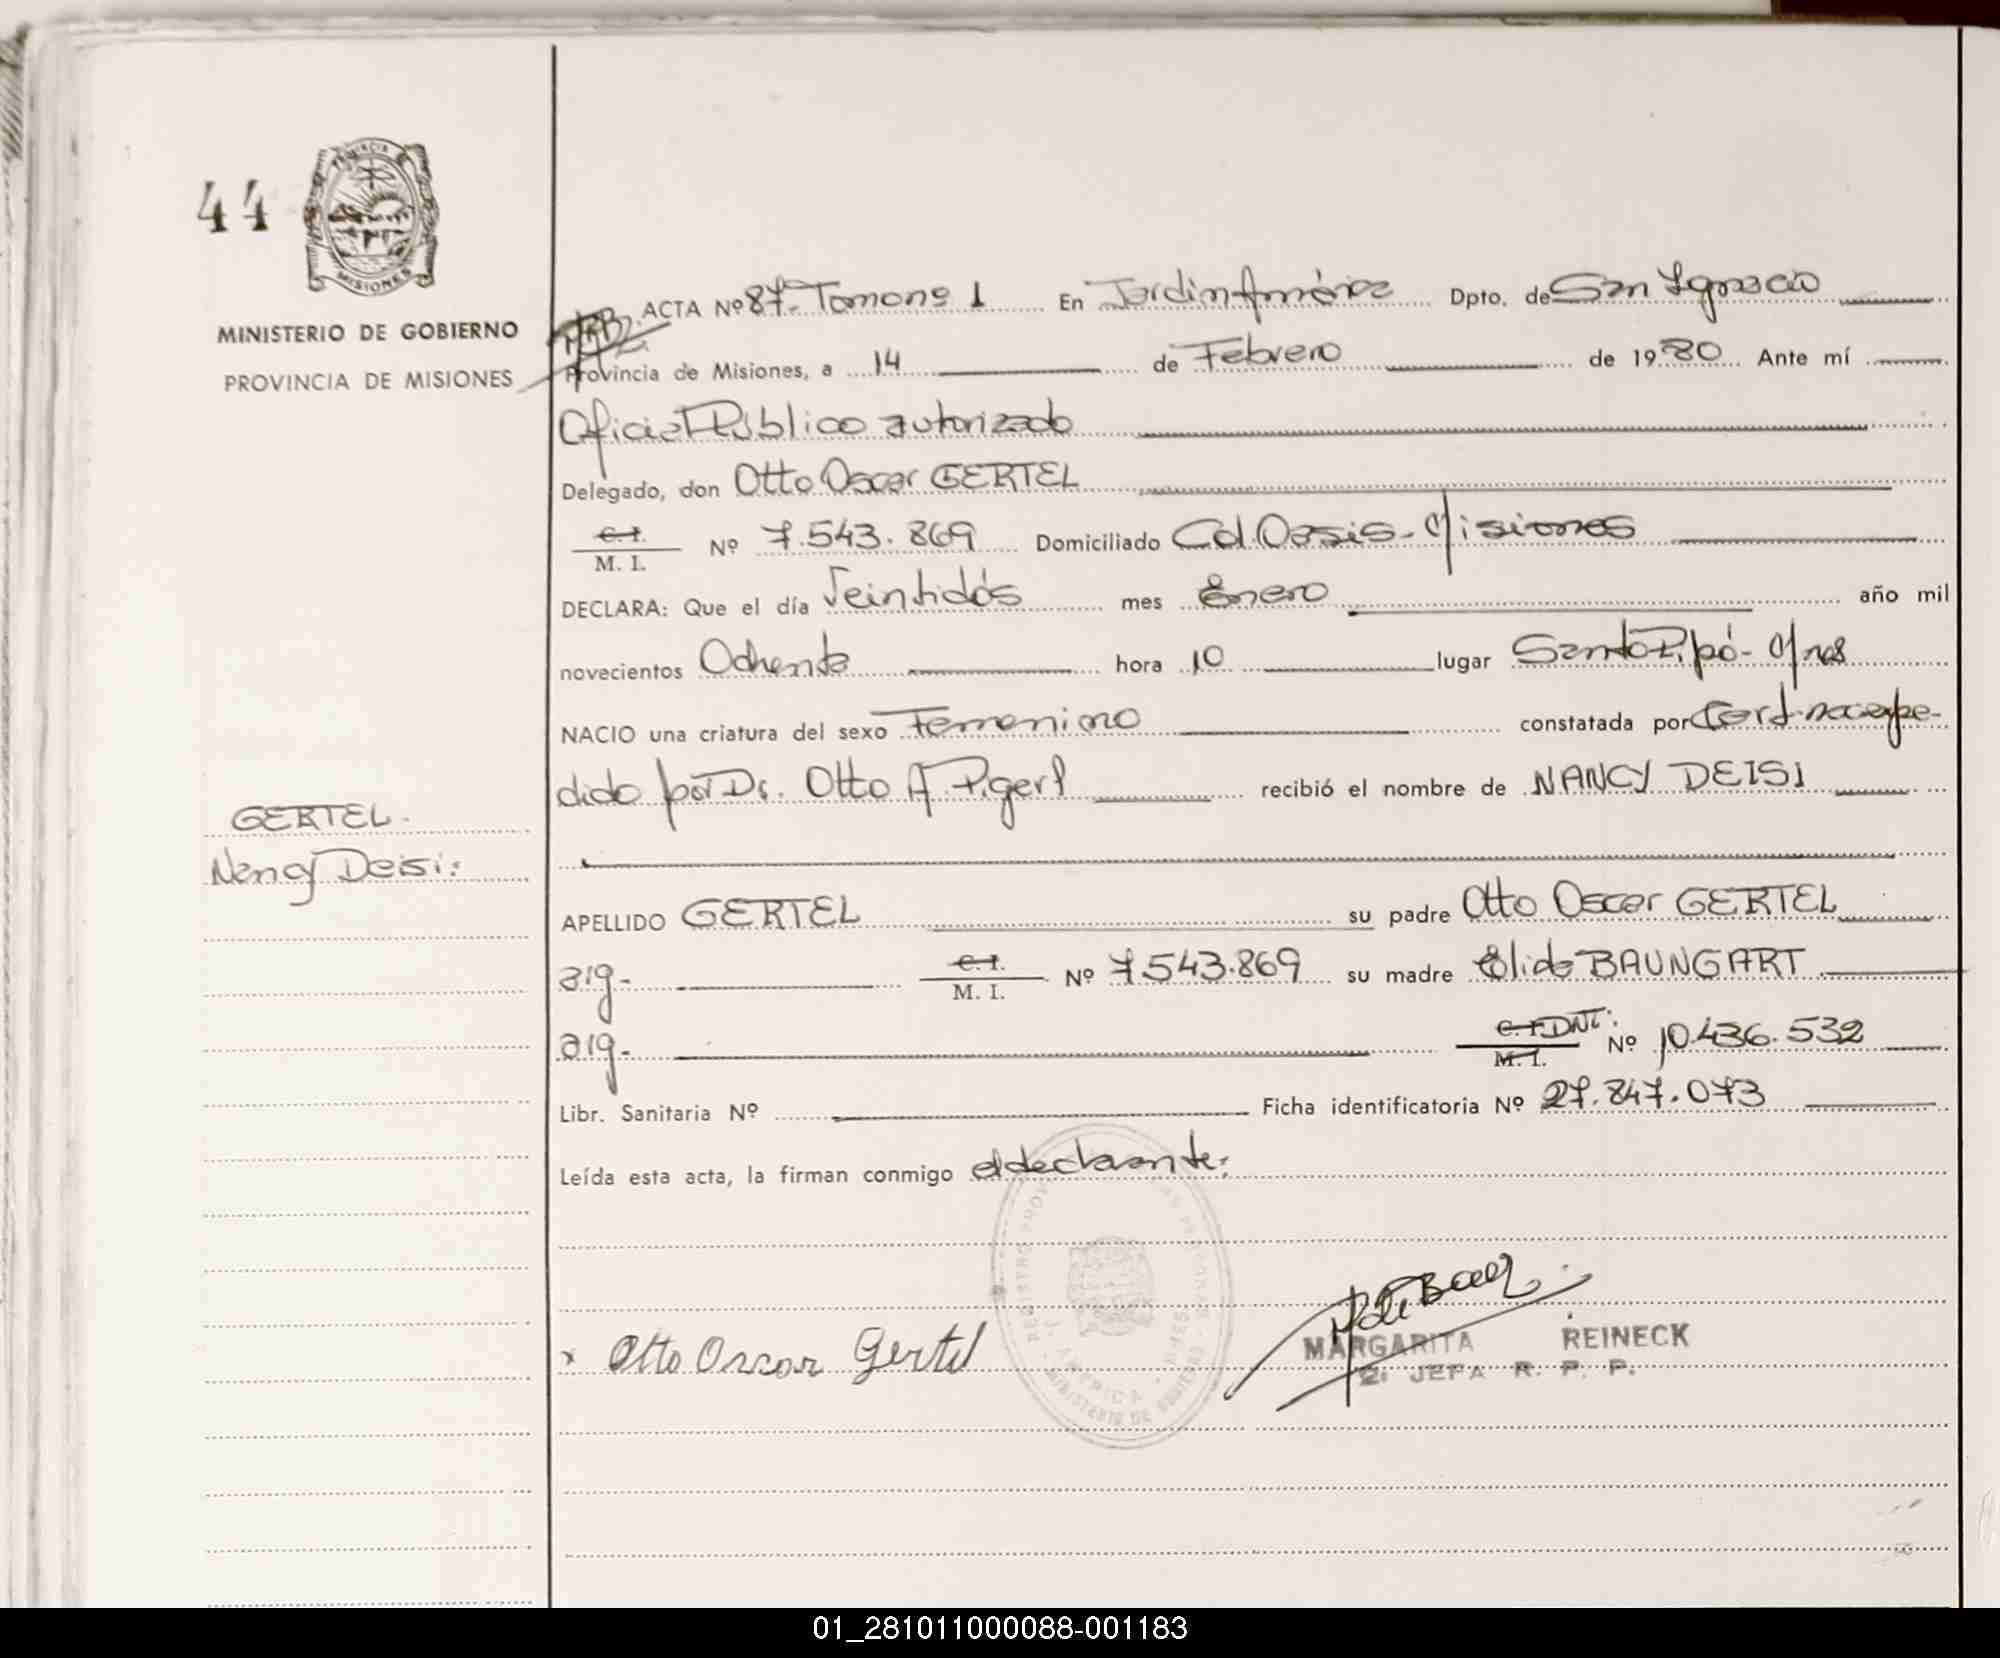 44
PROVINCIA
MISIONES
MINISTERIO DE GOBIERNO
PROVINCIA DE MISIONES
ACTA Nº 87- Tomo nº 1 En Jardin América Dpto. de San Ignacio
Provincia de Misiones, a 14 de Febrero de 1980 Ante mí
Oficial Público autorizado
Delegado, don Otto Oscar GERTEL
C. I.
M. I. Nº 7.543.869 Domiciliado Cd Oasis- Misiones
DECLARA: Que el día Veintidós mes Enero año mil
novecientos Ochenta hora 10 lugar Santo Pipó- Mnes
NACIO una criatura del sexo Femenino constatada por Cert. nac expe-
dido por Dr. Otto A Pigerl recibió el nombre de NANCY DEISI
GERTEL-
Nancy Deisi:
APELLIDO GERTEL su padre Otto Oscar GERTEL
arg- C. I.
M. I. Nº 7.543.869 su madre Elida BAUNGART
arg- C. I. DNI:
M. I. Nº 10.436.532
Libr. Sanitaria Nº Ficha identificatoria Nº 27.847.073
Leída esta acta, la firman conmigo el declarante:
x Otto Oscar Gertel
MARGARITA REINECK
2: JEFA R. P. P.
01_281011000088-001183